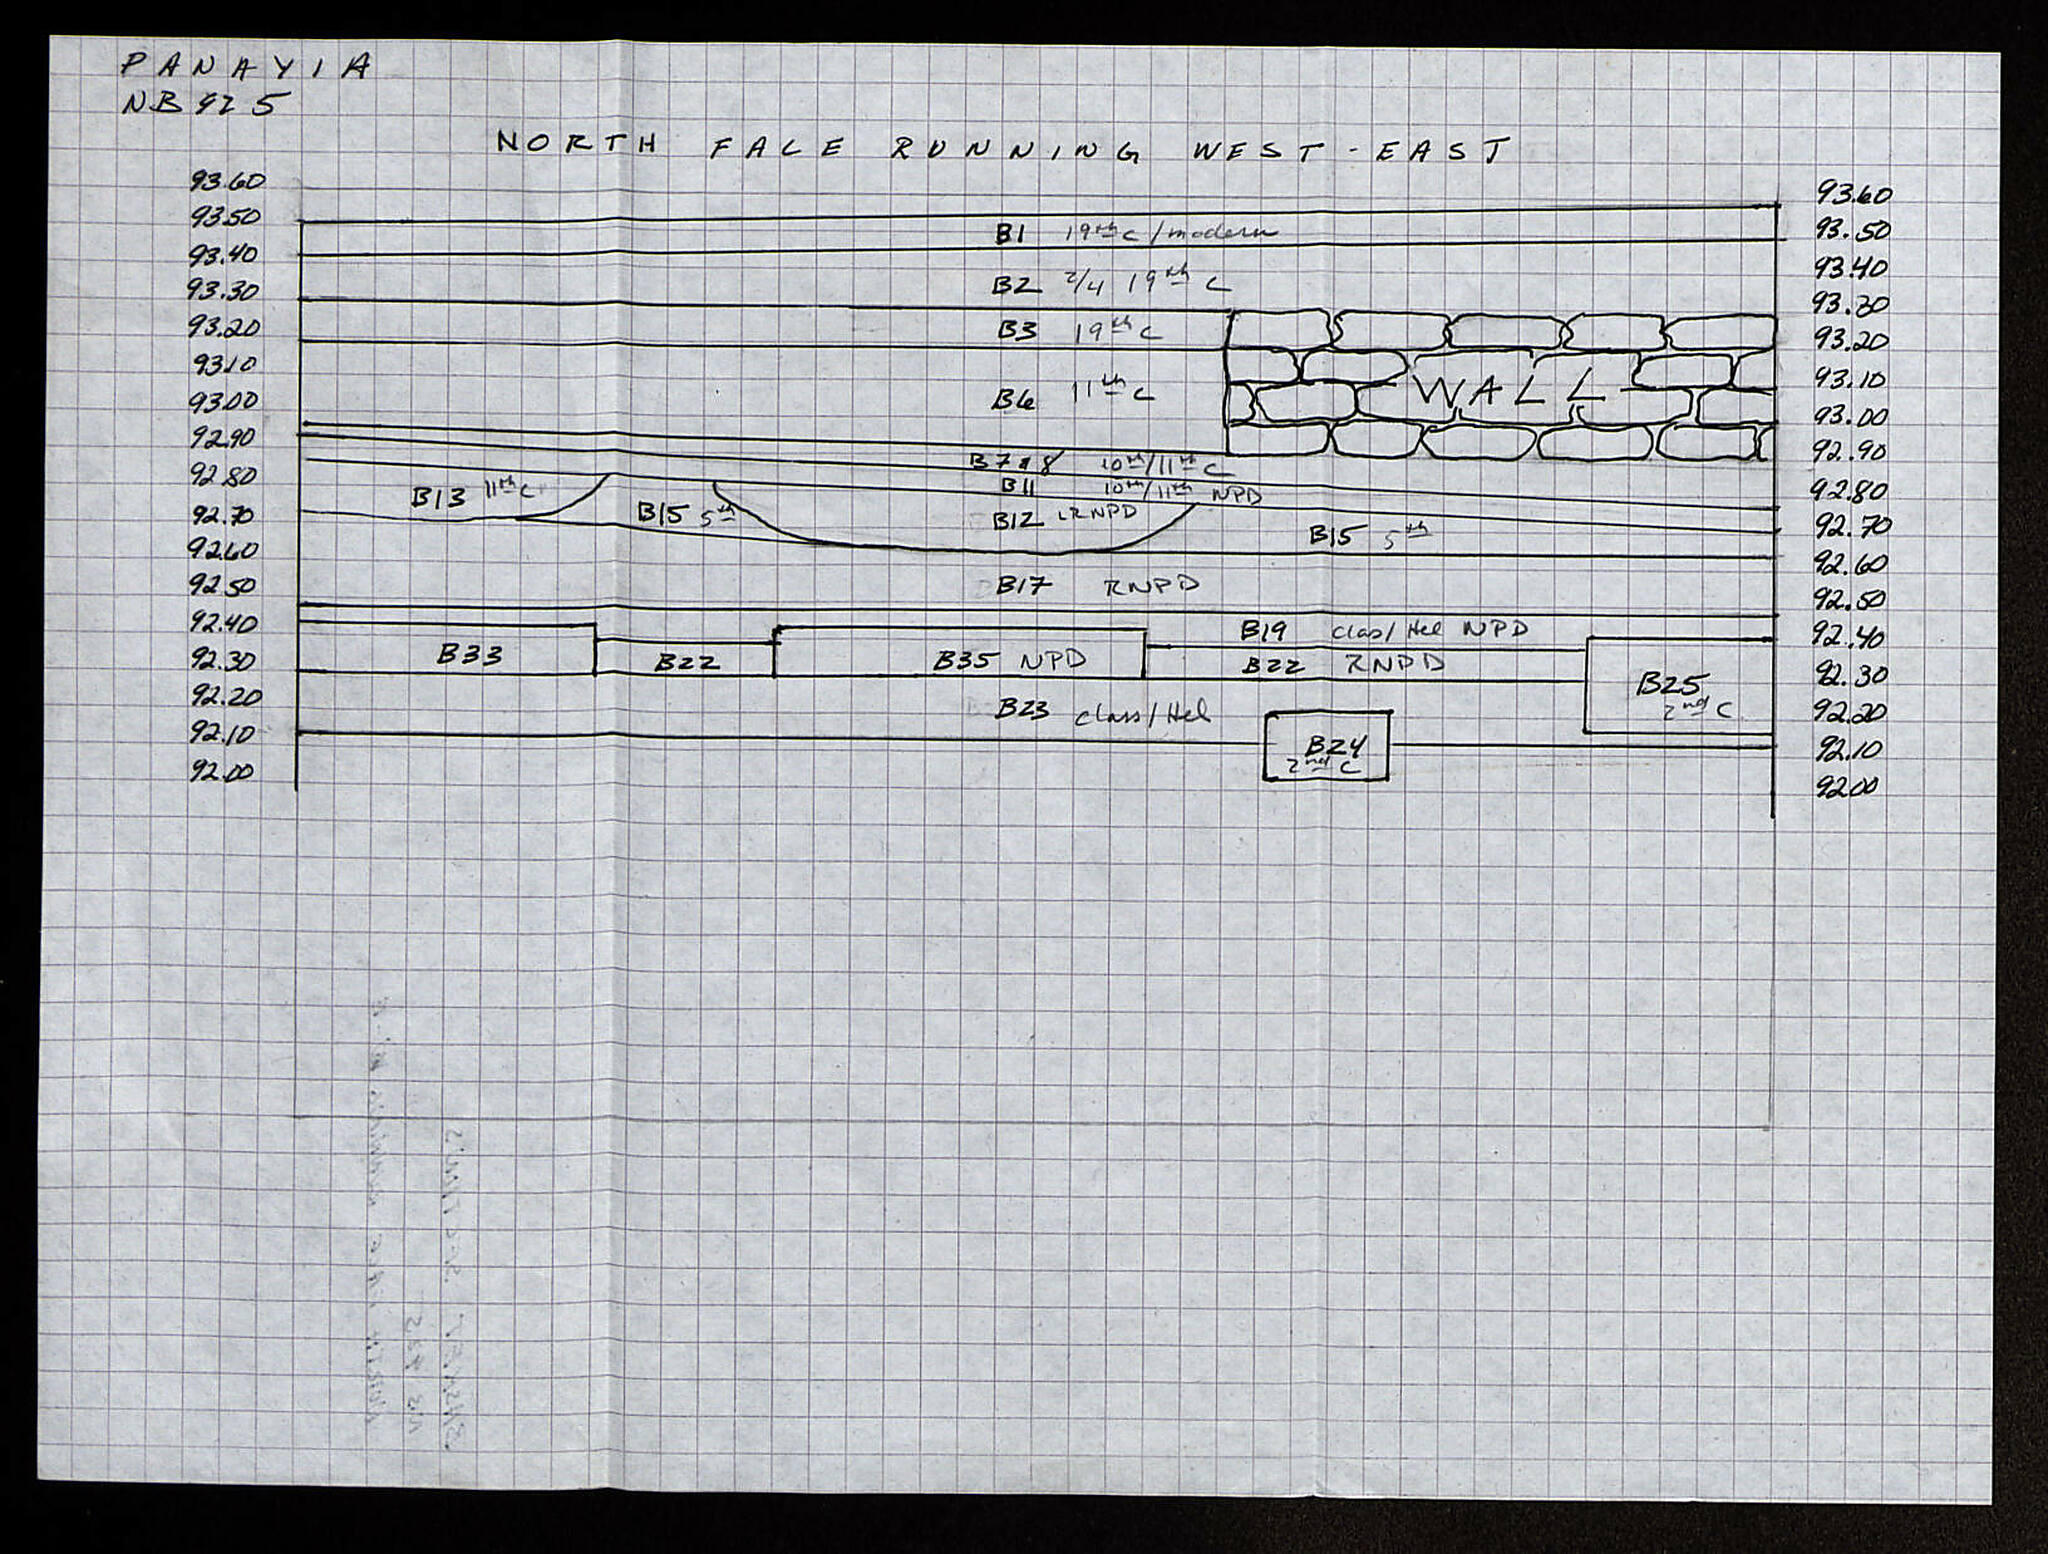 PANAYIA
NB 925
NORTH FACE RUNNING WEST-EAST
93.60
93.50
93.40
93.30
93.20
93.10
93.00
92.90
92.80
92.70
92.60
92.50
92.40
92.30
92.20
92.10
92.00
B1 19th C / modern
B2 2/4 19th C
B3 19th C
B6 11th C
WALL
B7 & 8 10th/11th C
B11 10th/11th NPD
B13 11th C
B15 5th
B12 LRNPD
B15 5th
B17 RNPD
B19 class/Hel NPD
B33
B22
B35 NPD
B22 RNPD
B25
2nd C
B23 class/Hel
B24
2nd C
93.60
93.50
93.40
93.30
93.20
93.10
93.00
92.90
92.80
92.70
92.60
92.50
92.40
92.30
92.20
92.10
92.00